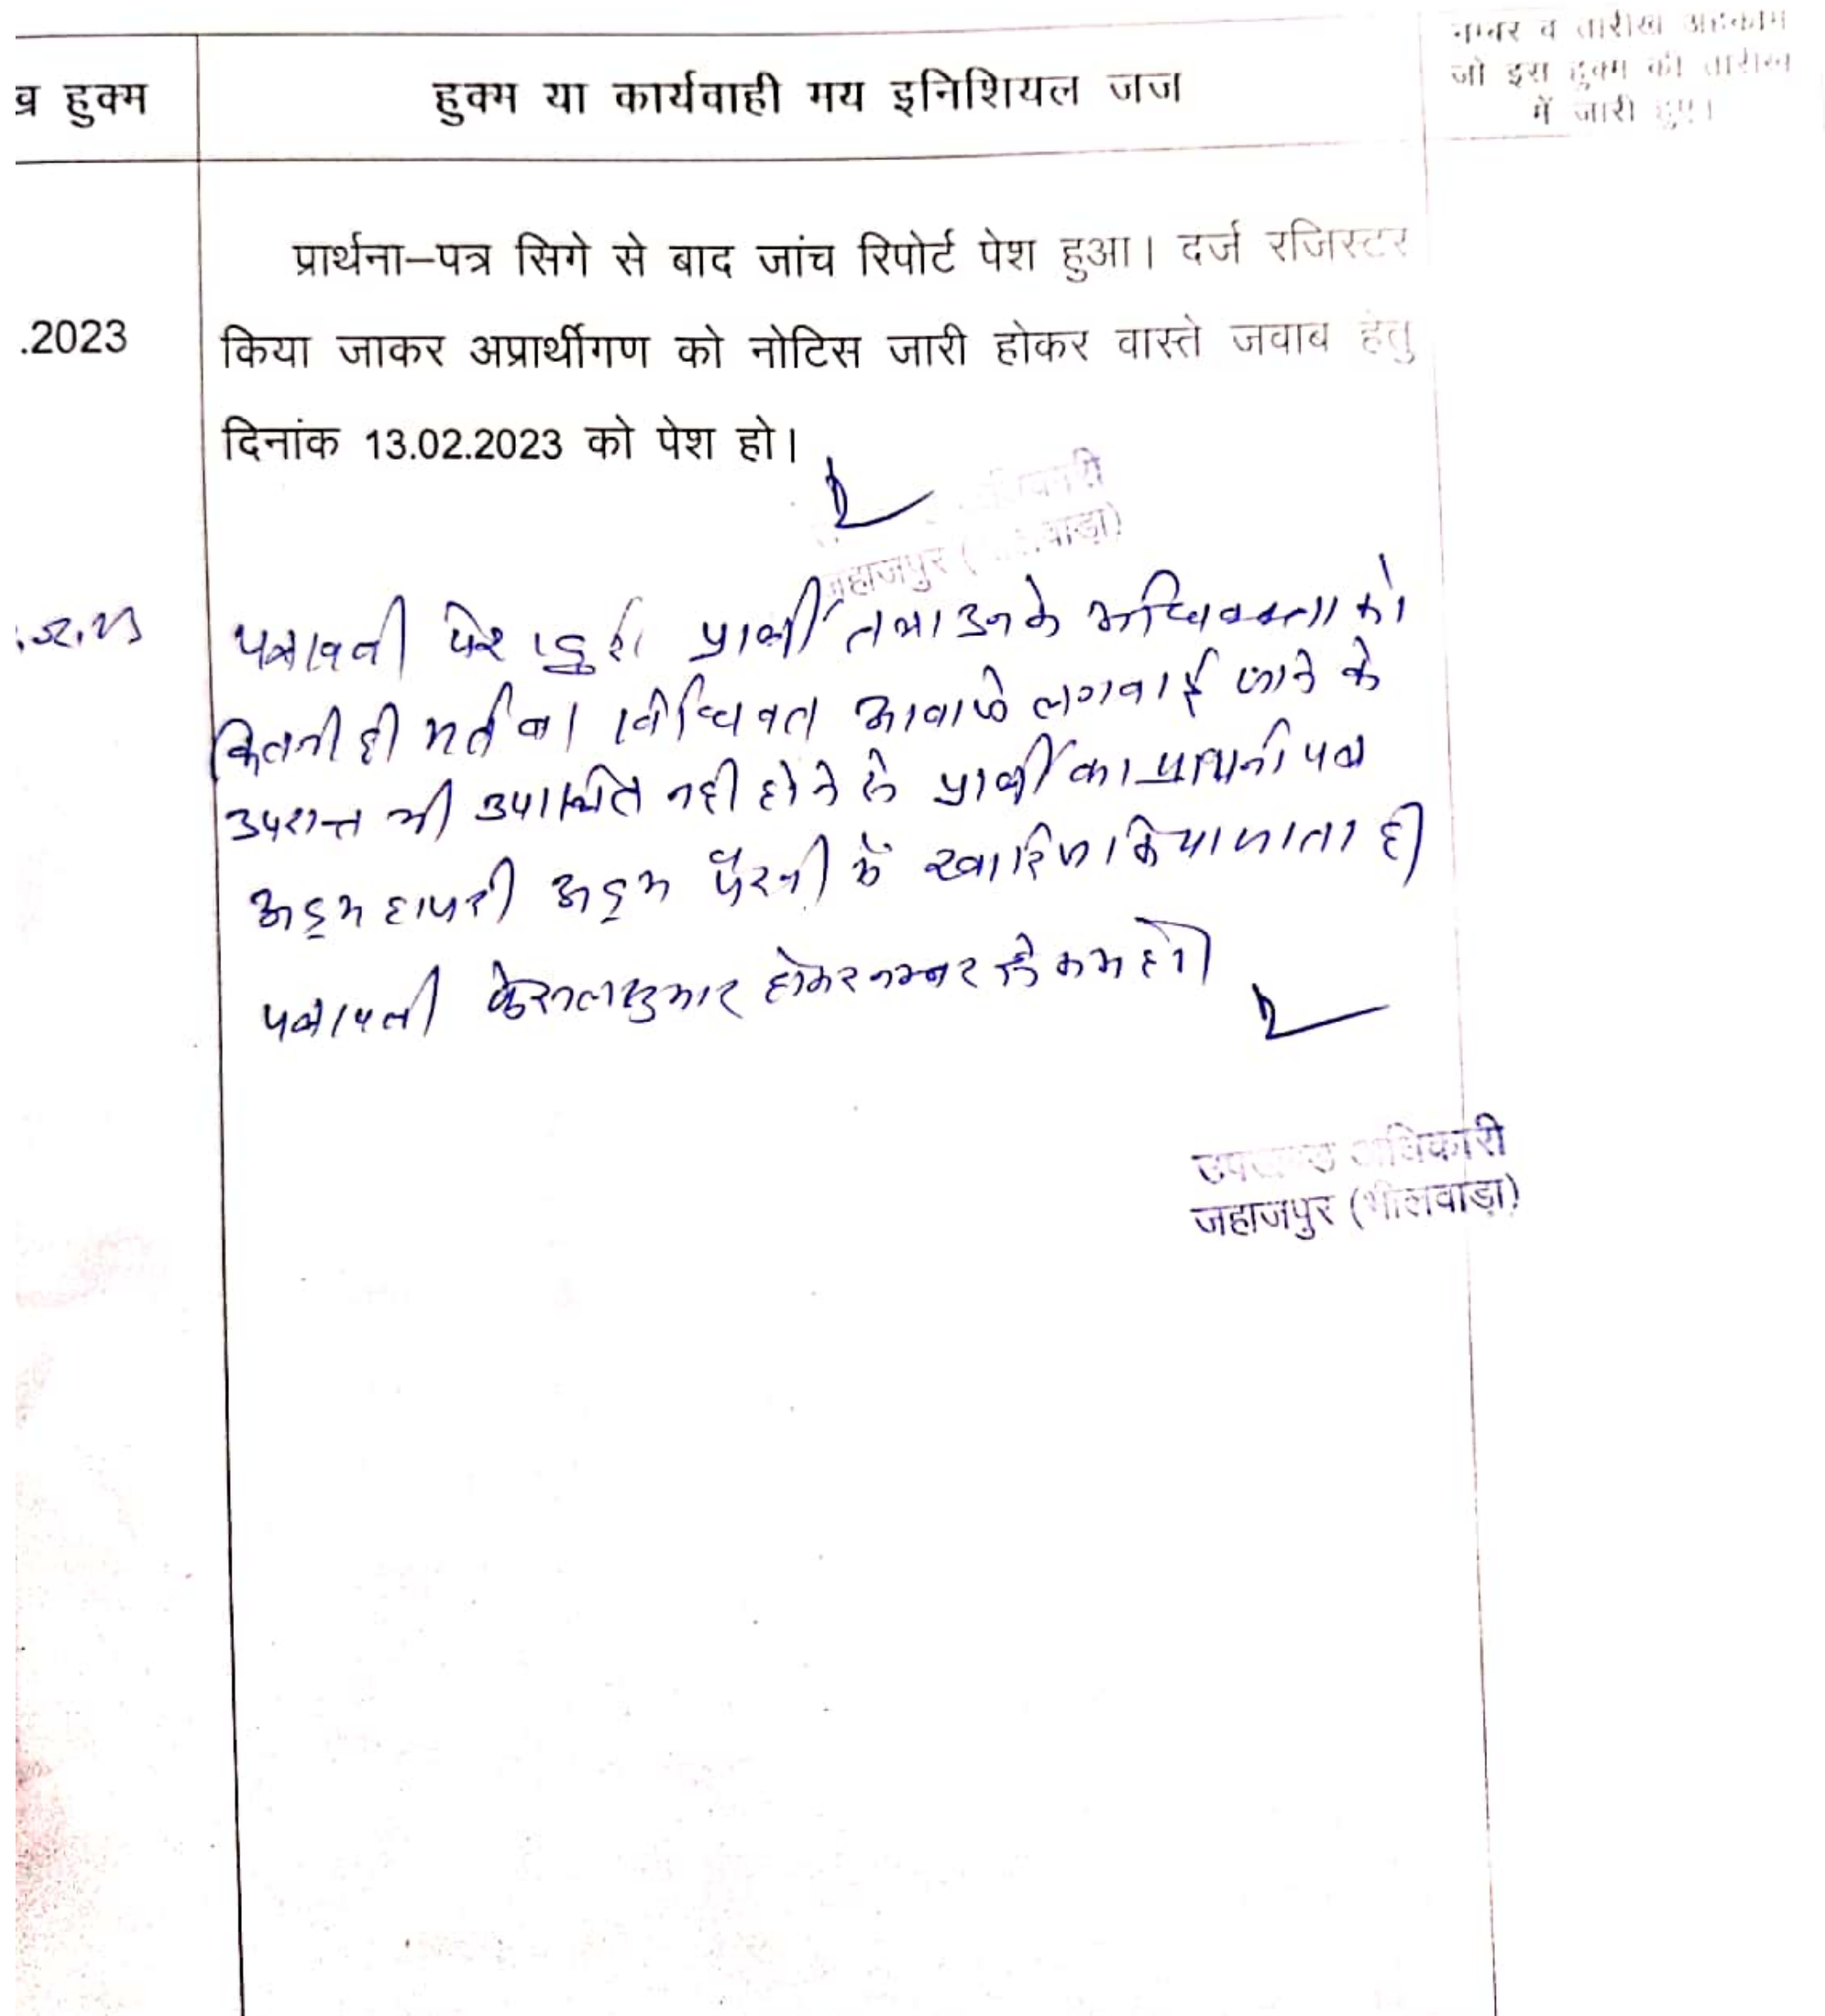 व हुक्म
हुक्म या कार्यवाही मय इनिशियल जज
नम्बर व तारीख अहकाम
जो इस हुक्म की तारीख
में जारी हुए।
प्रार्थना–पत्र सिगे से बाद जांच रिपोर्ट पेश हुआ। दर्ज रजिस्टर
.2023
किया जाकर अप्रार्थीगण को नोटिस जारी होकर वास्ते जवाब हेतु
दिनांक 13.02.2023 को पेश हो।
जहाजपुर (भीलवाड़ा)
पत्रावली पेश हुई। प्रार्थी तथा उनके अधिवक्ता को
कितनी ही मर्तबा विधिवत आवाजे लगवाई जाने के
उपरान्त भी उपस्थित नही होने से प्रार्थी का प्रार्थना पत्र
अदम हाजरी अदम पैरवी में खारिज किया जाता है।
पत्रावली फैसल शुमार होकर नम्बर से कम हो।
उपखण्ड अधिकारी
जहाजपुर (भीलवाड़ा)